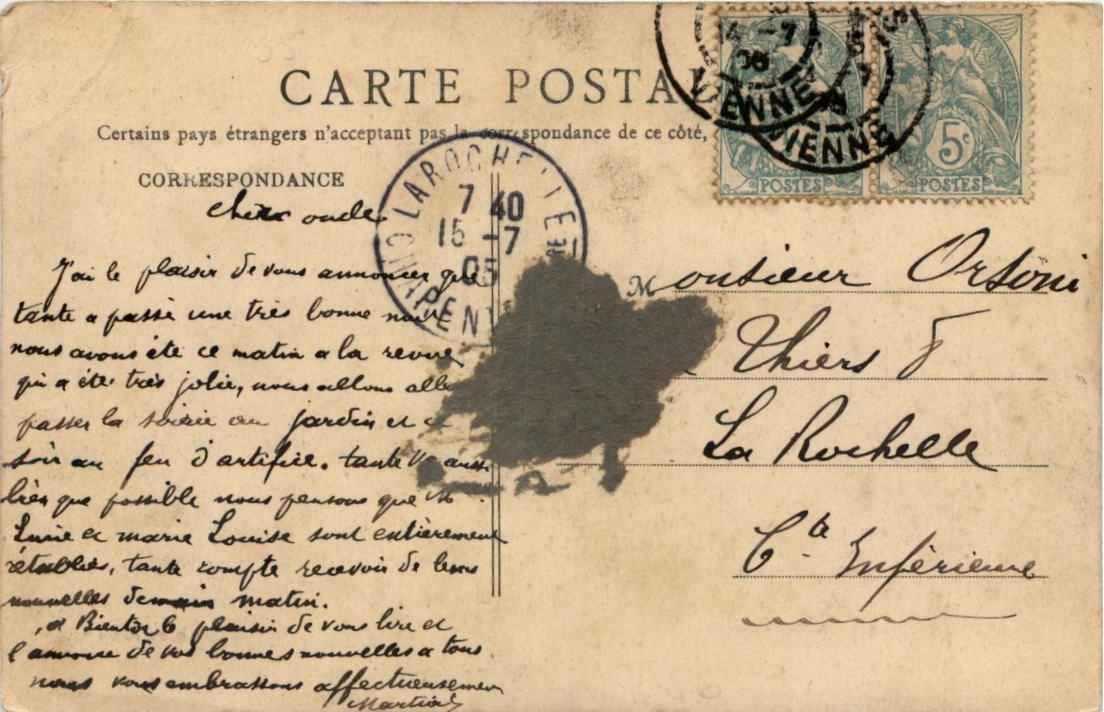 CARTE POSTA
Certains pays étrangers n'acceptant pas la correspondance de ce côté,
CORRESPONDANCE
LA ROCHELLE
7 40
15 -7
05
14 -7
VIENNE
VIENNE
5c
POSTES
POSTES
cher oncle
J'ai le plaisir de vous annoncer que
tante a passé une très bonne nuit
nous avons été ce matin a la revue
qui a été très jolie, nous allons alle
passer la soirée au jardin et ce
soir au feu d'artifice. tante va aussi
bien que possible nous pensons que
Lucie et marie Louise sont entièrement
rétablies, tante compte recevoir de leurs
nouvelles demain matin.
a Bientot le plaisir de vous lire et
l'annonce de vos bonnes nouvelles a tous
nous vous embrassons affectueusement
Martial
Monsieur Orsoni
Thiers 8
La Rochelle
Cte Inférieure